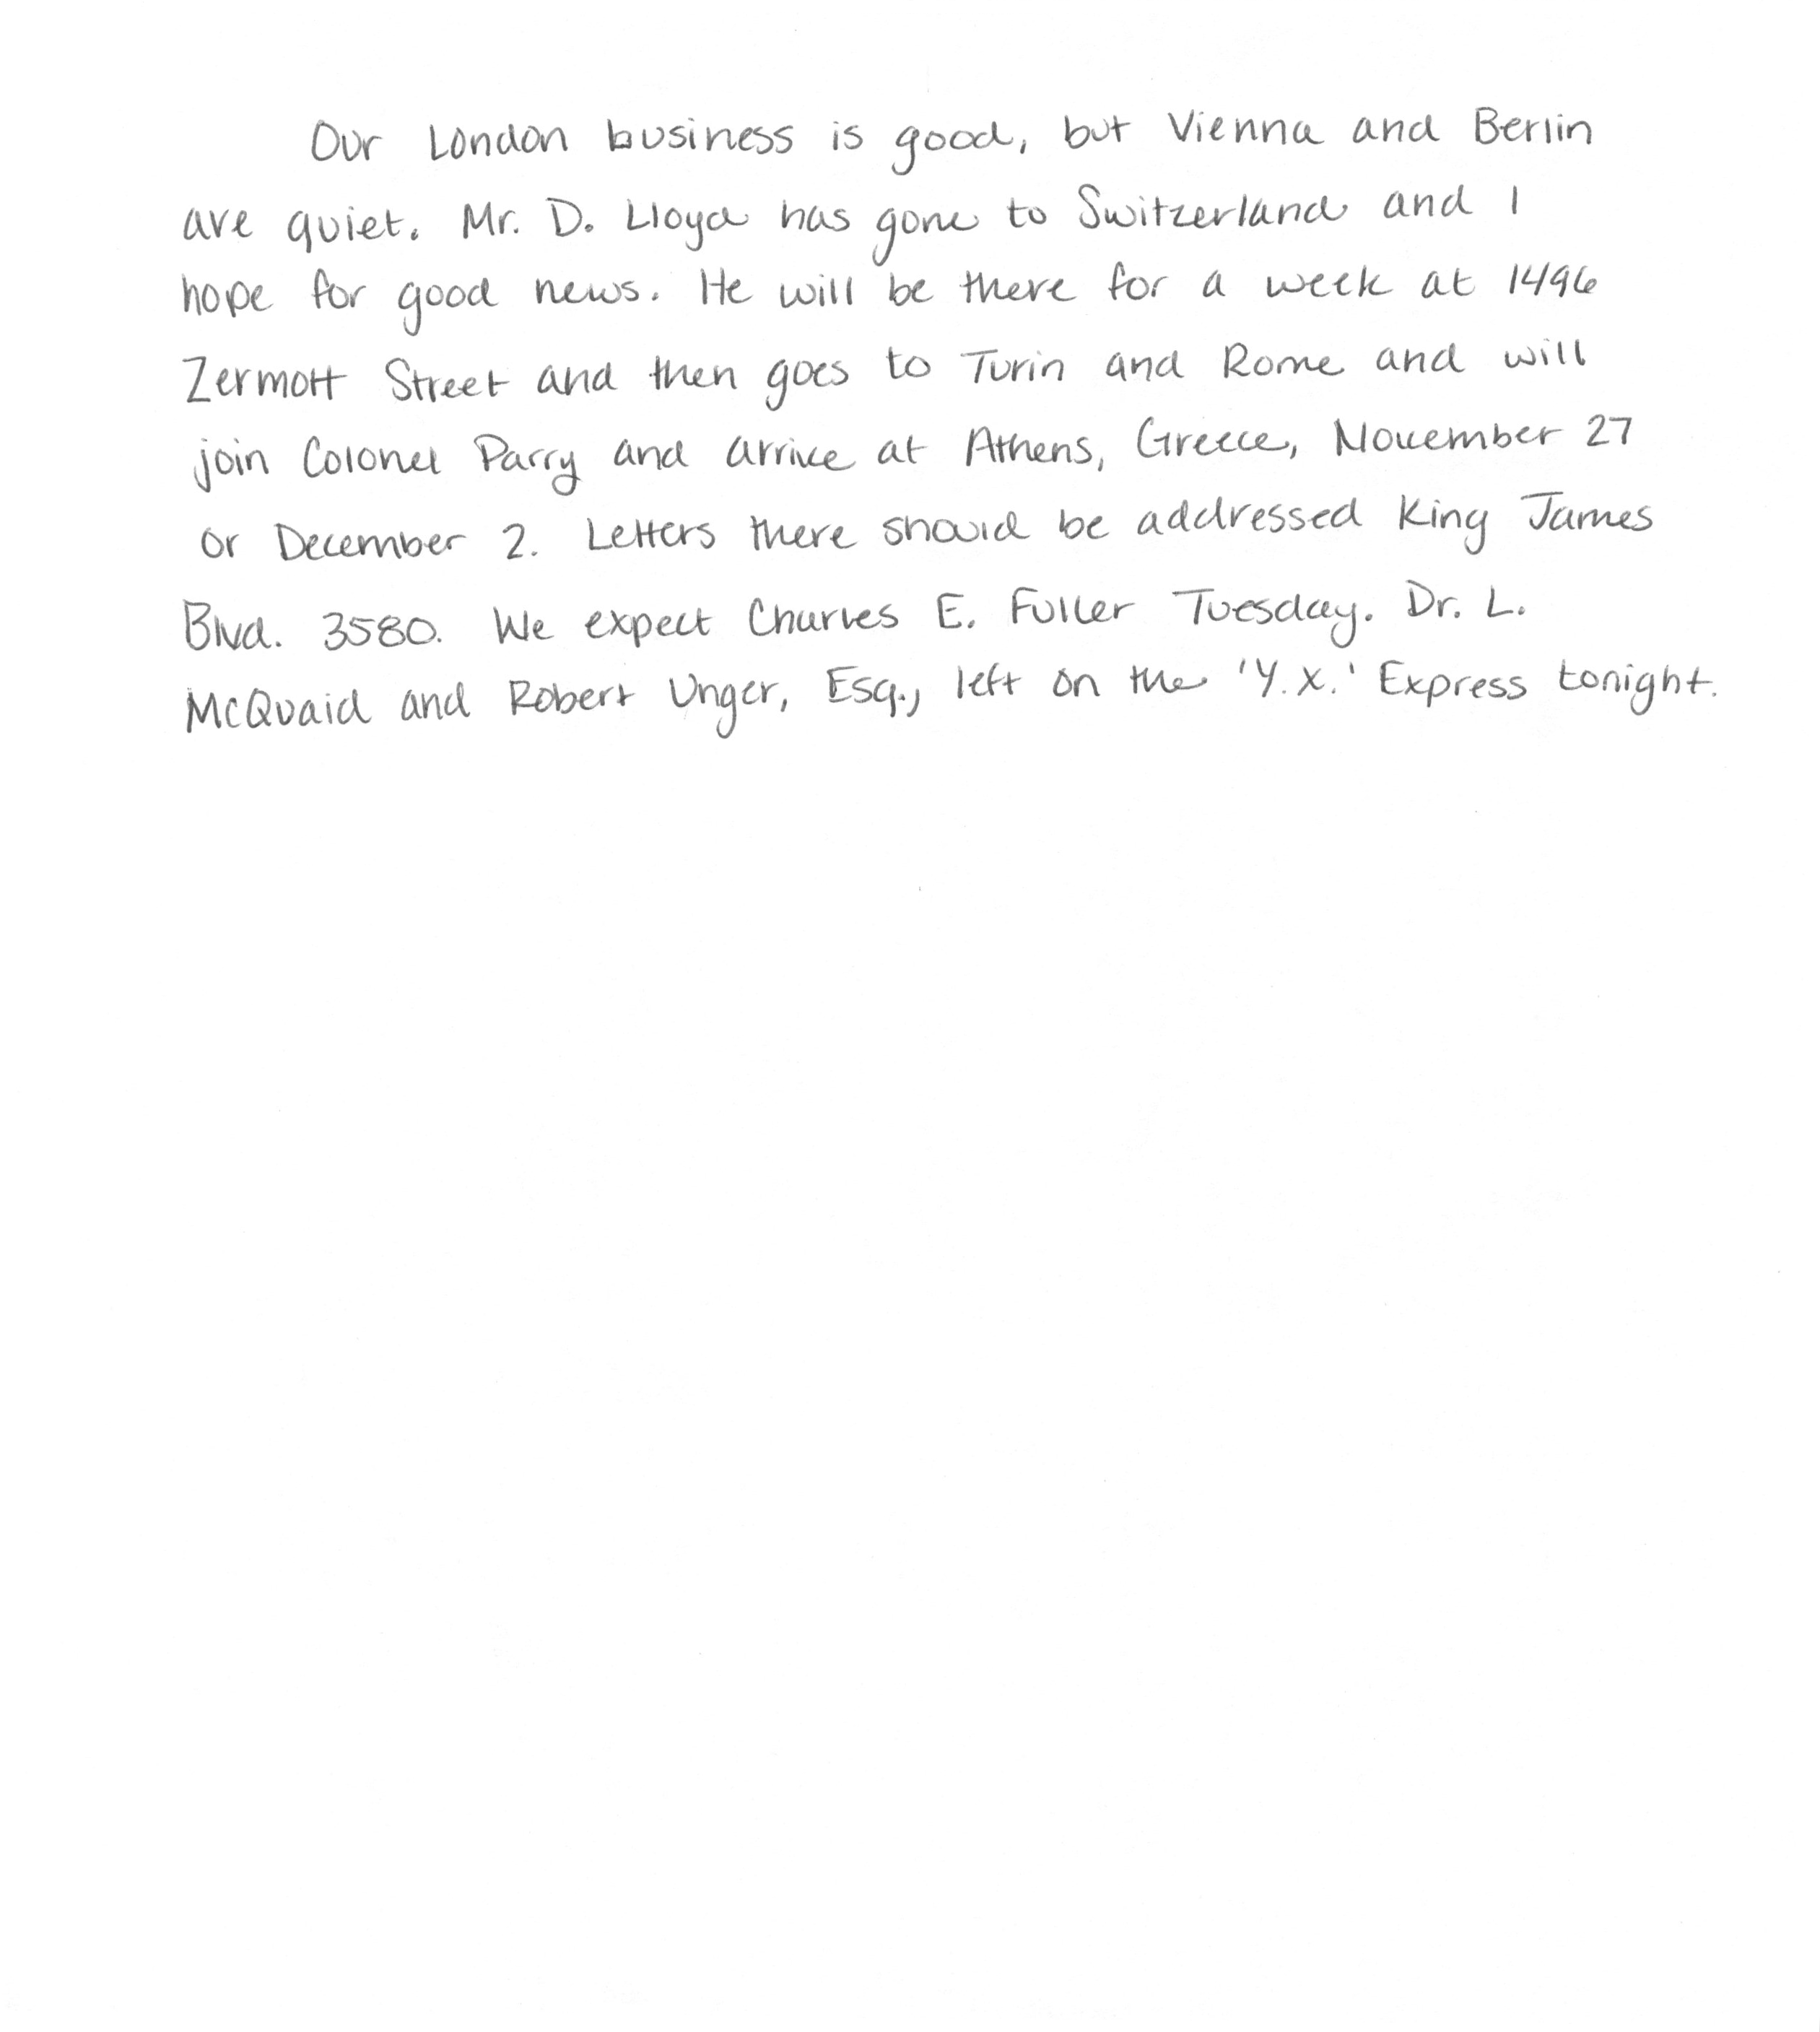 Our London business is good, but Vienna and Berlin
are quiet. Mr. D. Lloyd has gone to Switzerland and I
hope for good news. He will be there for a week at 1496
Zermott Street and then goes to Turin and Rome and will
join Colonel Parry and arrive at Athens, Greece, November 27
or December 2. Letters there should be addressed King James
Blvd. 3580. We expect Charles E. Fuller Tuesday. Dr. L.
McQuaid and Robert Unger, Esq., left on the 'Y.X.' Express tonight.